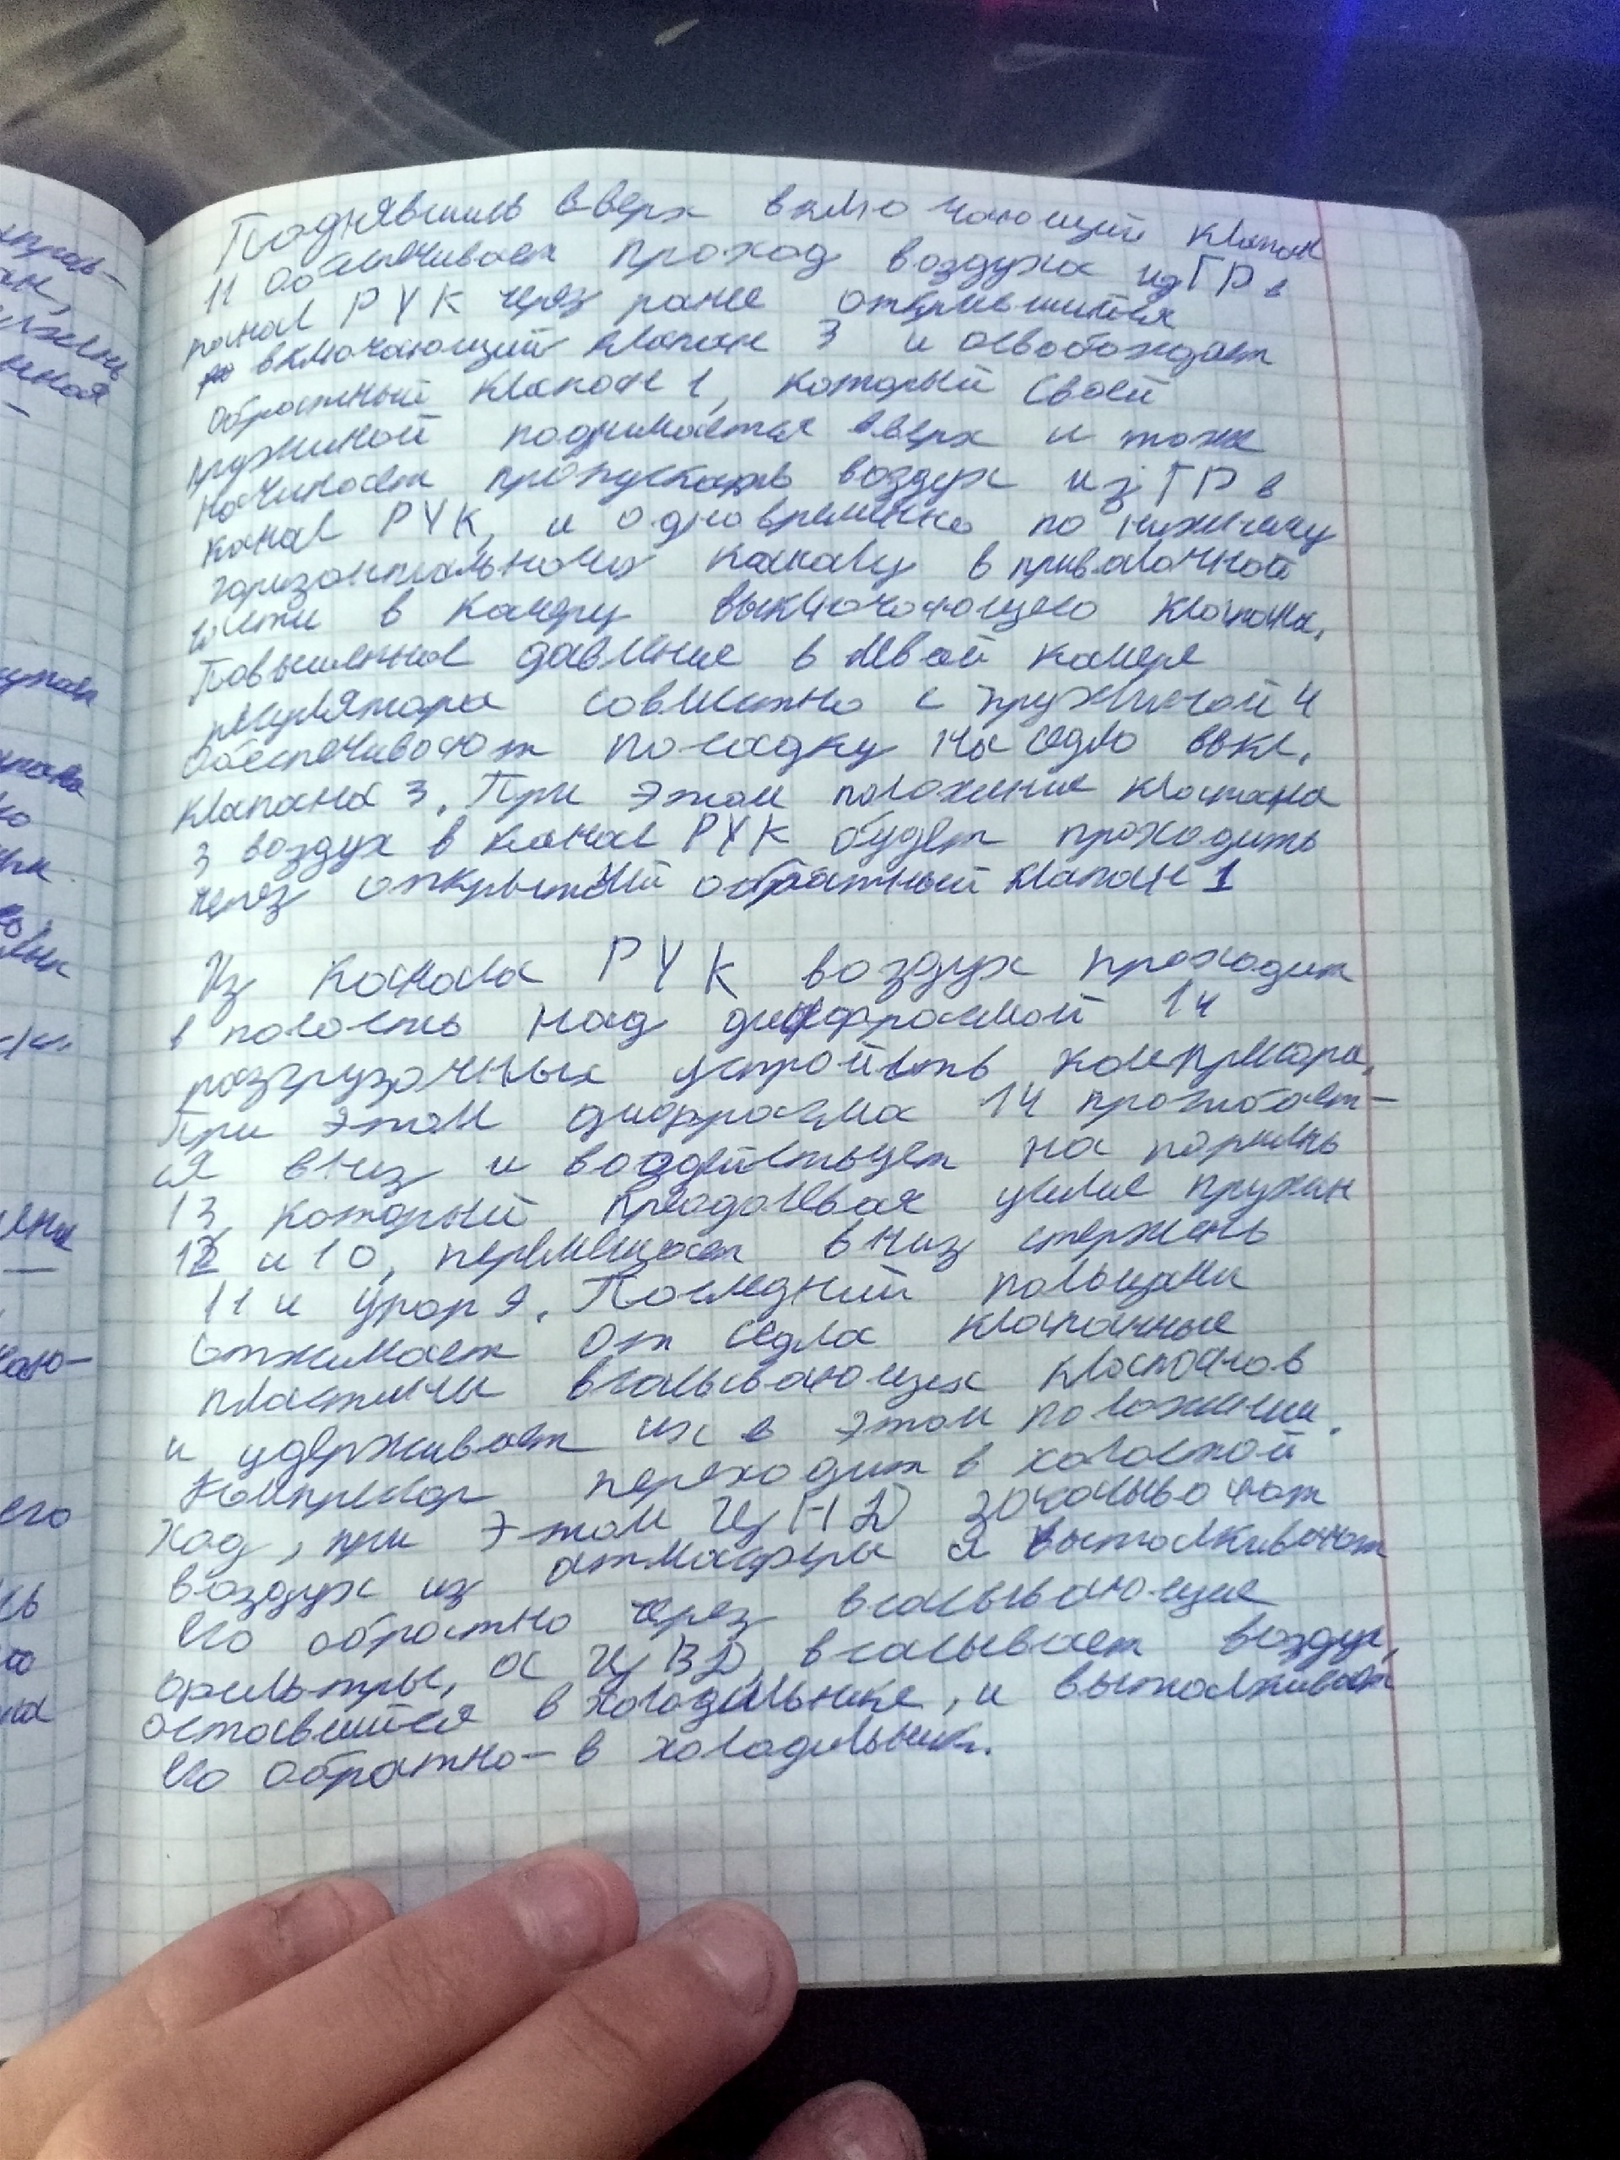 Поднявшись вверх включающий клапан
11 обеспечивает проход воздуха из ГР в
канал РУК через ранее открывшийся
включающий клапан 3 и освобождает
обратный клапан 1, который своей
пружиной поднимается вверх и тоже
начинает пропускать воздух из ГР в
канал РУК, и одновременно по нижнему
горизонтальному каналу в привалочной
части в камеру выключающего клапана.
Повышенное давление в левой камере
регулятора совместно с пружиной 4
обеспечивают посадку на седло выкл.
клапана 3. При этом положение клапана
3 воздух в канал РУК будет проходить
через открытый обратный клапан 1
Из канала РУК воздух проходит
в полость над диафрагмой 14
разгрузочных устройств компресора.
При этом диафрагма 14 прогибает-
ся вниз и воздействует на поршень
13, который преодолевая усилие пружин
12 и 10, перемещает вниз стержень
11 и упор 9. Последний пальцами
отжимает от седла клапанные
пластины всасывающих клапанов
и удерживает их в этом положении.
Компресор переходит в холостой
ход, при этом ЦНД закачивают
воздух из атмосферы и выталкивают
его обратно через всасывающие
фильтры, а ЦВД, всасывает воздух,
оставшийся в холодильнике, и выталкивает
его обратно - в холодильник.